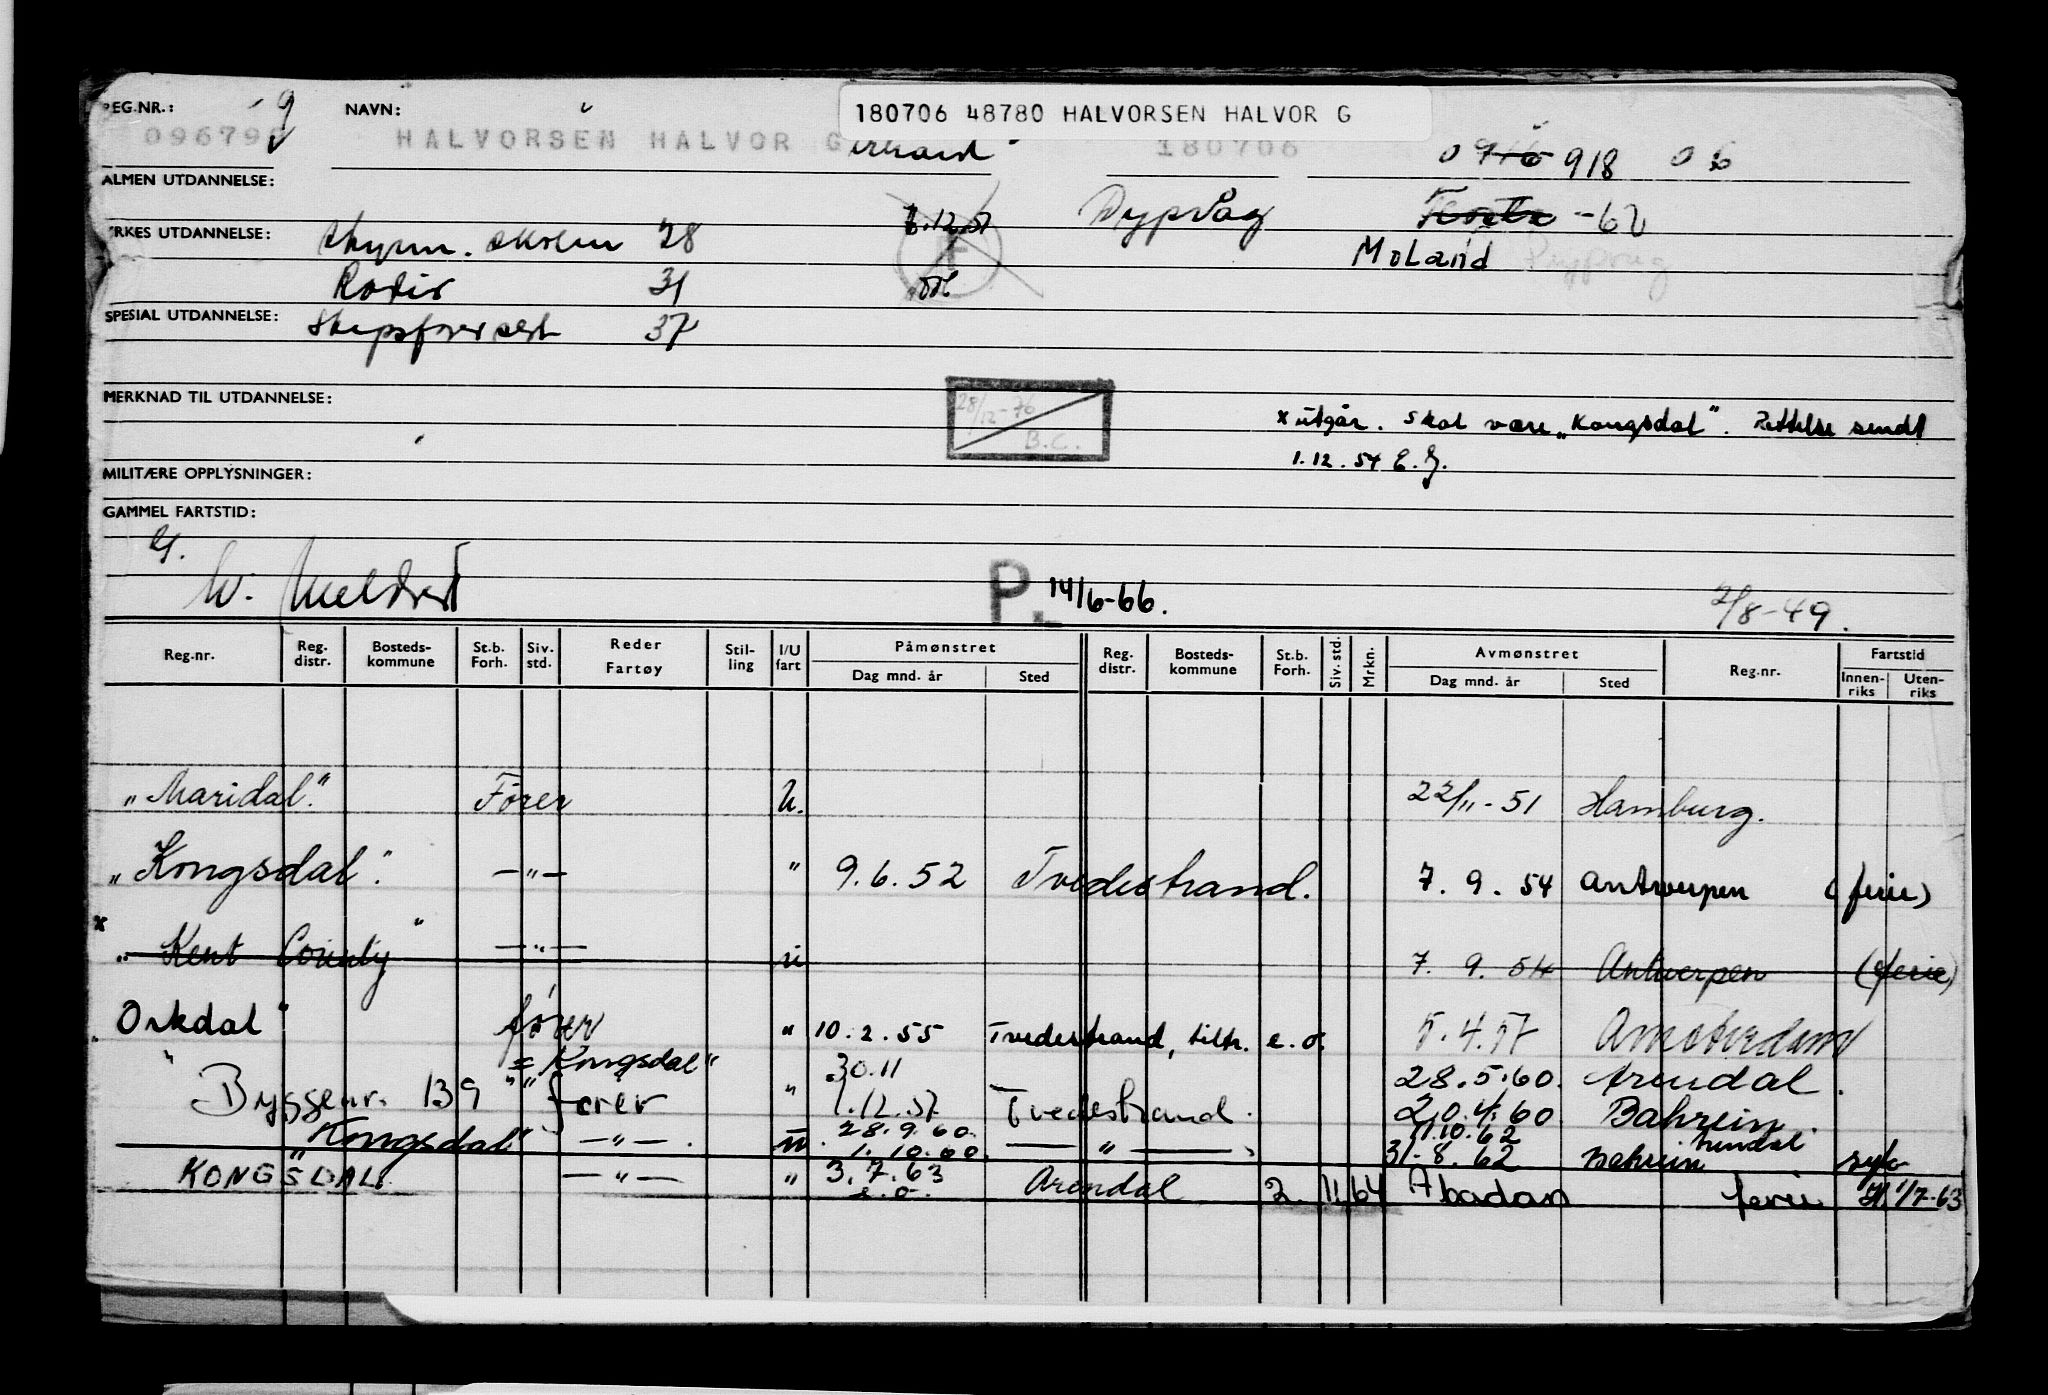 REG.NR.: 9 NAVN: 180706 48780 HALVORSEN HALVOR G
09679 HALVORSEN HALVOR G 180706 0 918 06
ALMEN UTDANNELSE:
7.12.57 Dypvåg -62
YRKES UTDANNELSE: skolen 28 F Moland Dypvåg
Radio 31
SPESIAL UTDANNELSE: Skipsfører 37
MERKNAD TIL UTDANNELSE: 28/12-76 B.C. x utgår. Skal være „Kongsdal". Rettelse sendt
1.12.54 E.G.
MILITÆRE OPPLYSNINGER:
GAMMEL FARTSTID:
W. P. 14/6-66. 2/8-49.
Reg.nr. Reg. distr. Bosteds-kommune St.b. Forh. Siv. std. Reder Fartøy Stil-ling I/U fart Påmønstret Dag mnd. år Sted Reg. distr. Bosteds-kommune St.b. Forh. Siv. std. Mrkn. Avmønstret Dag mnd. år Sted Reg.nr. Fartstid Innen-riks Uten-riks
„Maridal." Fører U. 22/11-51 Hamburg.
„Kongsdal". —"— " 9.6.52 Tvedestrand. 7. 9. 54 Antwerpen (ferie)
x „Kent County" —"— u 7. 9. 54 Antwerpen (ferie)
„Orkdal" fører " 10.2.55 Tvedestrand, tiltr. e.o. 5.4.57 Amsterdam
= Kongsdal" 30.11 28.5.60. Arendal.
" Byggenr. 139 " fører " 1.12.57 Tvedestrand. 20.4.60 Bahrein.
„Kongsdal" —"—. u. 28.9.60 1.10.60. —"— 11.10.62 Arendal 31-8.62 Bahrein syk
KONGSDAL —"— " 3.7.63 e.o. Arendal 2. 11. 64 Abadan ferie 1/7-63